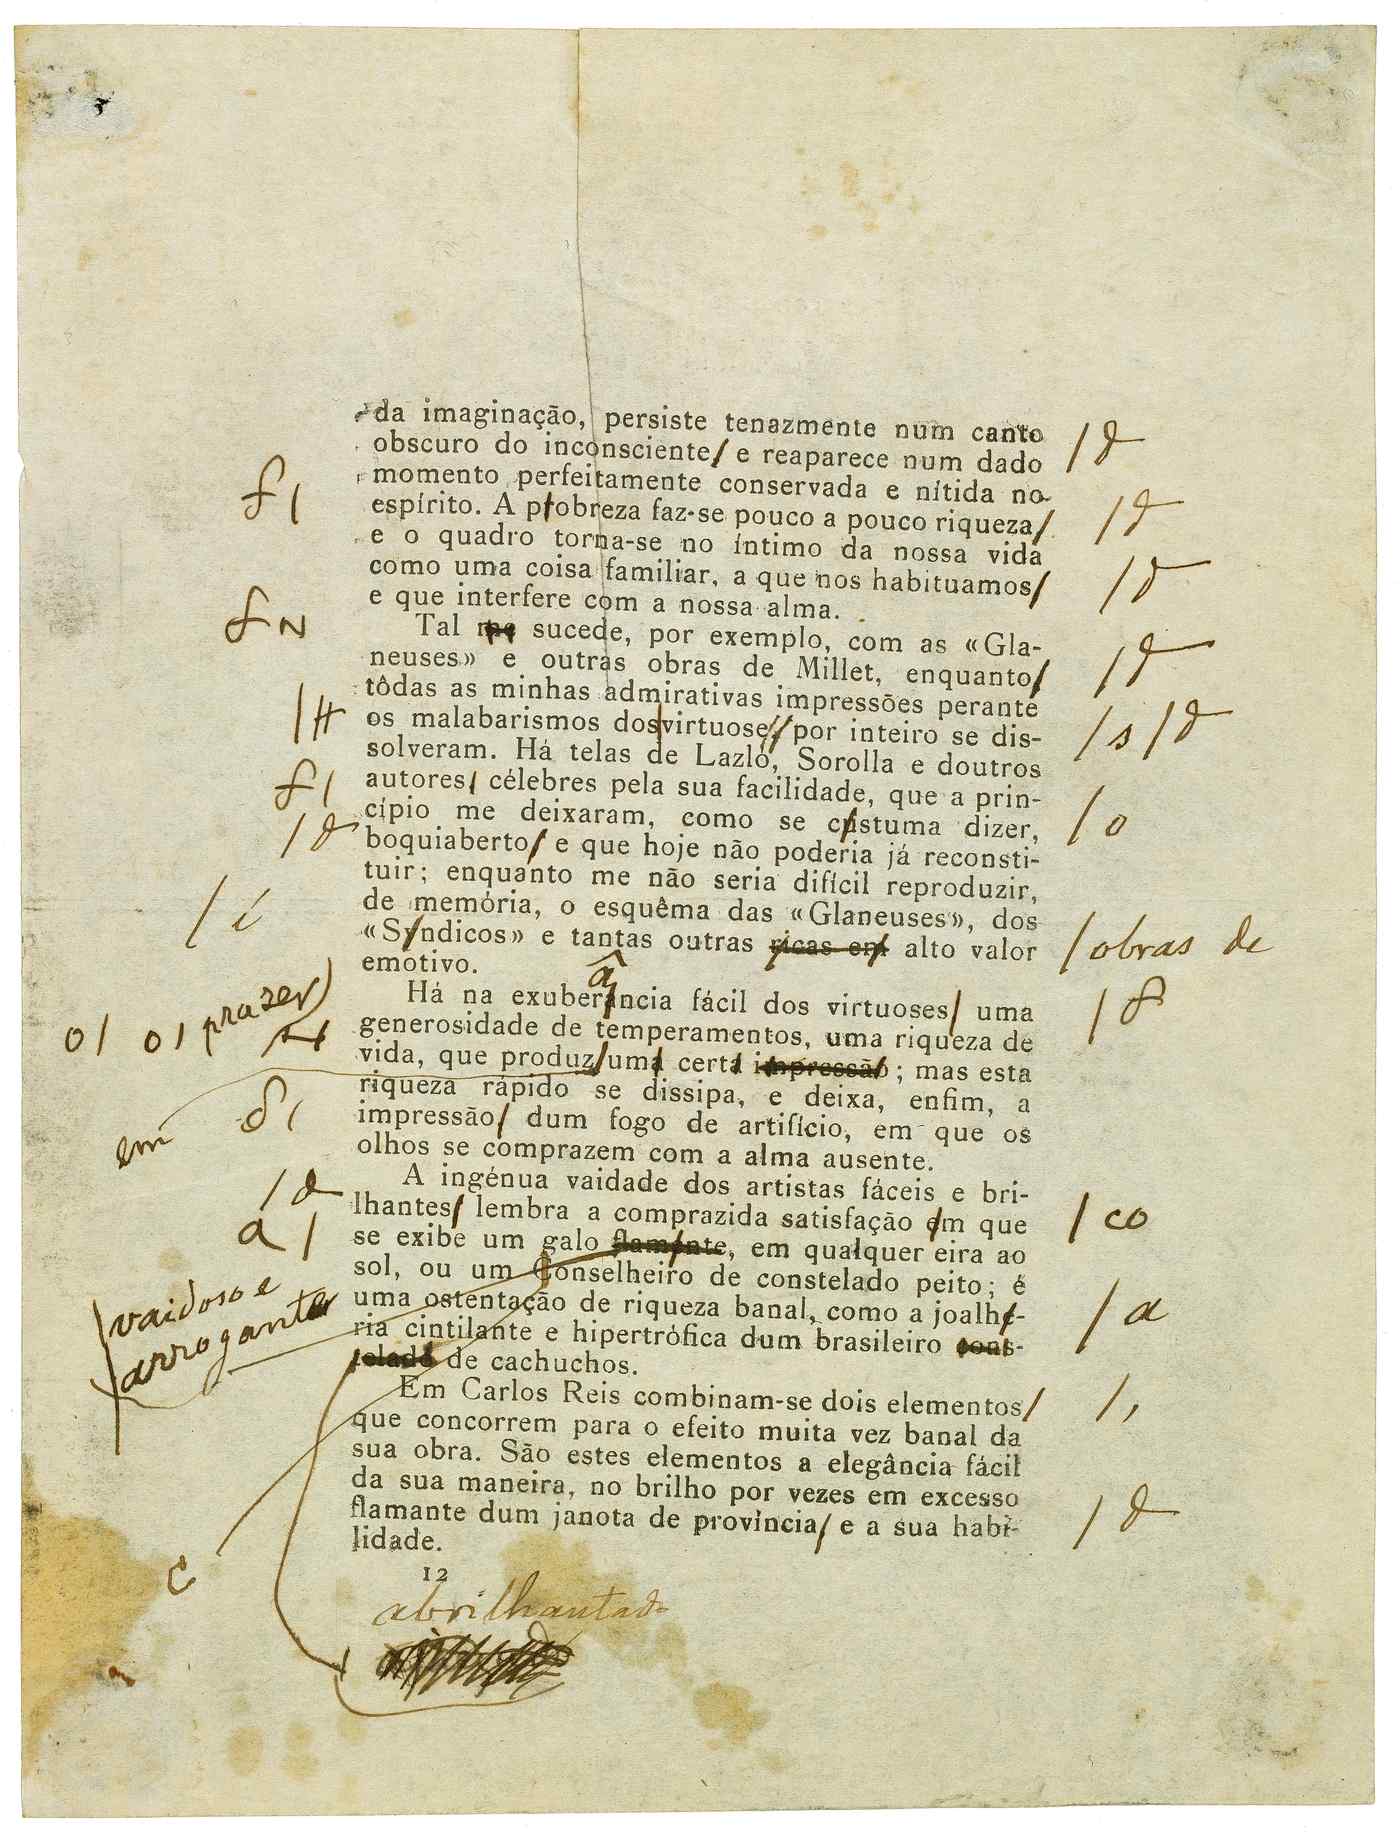 da imaginação, persiste tenazmente num canto
obscuro do inconsciente, e reaparece num dado
momento perfeitamente conservada e nítida no
espírito. A probreza faz-se pouco a pouco riqueza,
e o quadro torna-se no íntimo da nossa vida
como uma coisa familiar, a que nos habituamos,
e que interfere com a nossa alma.
Tal me sucede, por exemplo, com as «Gla-
neuses» e outras obras de Millet, enquanto,
tôdas as minhas admirativas impressões perante
os malabarismos dos virtuose, por inteiro se dis-
solveram. Há telas de Lazló, Sorolla e doutros
autores, célebres pela sua facilidade, que a prin-
cípio me deixaram, como se custuma dizer,
boquiaberto, e que hoje não poderia já reconsti-
tuir; enquanto me não seria difícil reproduzir,
de memória, o esquêma das «Glaneuses», dos
«Syndicos» e tantas outras ricas em alto valor
obras de
emotivo.
Há na exuberância fácil dos virtuoses, uma
generosidade de temperamentos, uma riqueza de
o o prazer
vida, que produz uma certa impressão; mas esta
riqueza rápido se dissipa, e deixa, enfim, a
em
impressão, dum fogo de artifício, em que os
olhos se comprazem com a alma ausente.
A ingénua vaidade dos artistas fáceis e bri-
lhantes, lembra a comprazida satisfação em que
co
a
se exibe um galo flamente, em qualquer eira ao
vaidoso e
arrogante
sol, ou um Conselheiro de constelado peito; é
uma ostentação de riqueza banal, como a joalhe-
a
ria cintilante e hipertrófica dum brasileiro cons-
telado de cachuchos.
Em Carlos Reis combinam-se dois elementos
que concorrem para o efeito muita vez banal da
sua obra. São estes elementos a elegância fácil
da sua maneira, no brilho por vezes em excesso
flamante dum janota de província, e a sua habi-
lidade.
c
12
abrilhantado